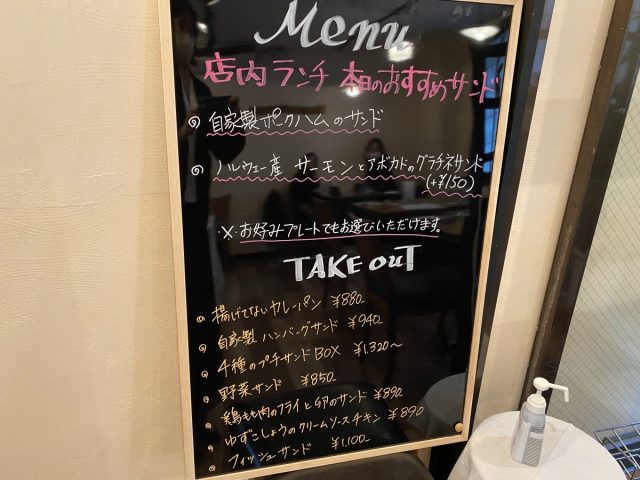 Menu
店内ランチ 本日のおすすめサンド
自家製ポークハムのサンド
ノルウェー産 サーモンとアボカドのグラチネサンド
(+¥150)
※お好みプレートでもお選びいただけます。
TAKE OUT
揚げてないカレーパン ¥880-
自家製 ハンバーグサンド ¥940-
4種のプチサンドBOX ¥1,320~
野菜サンド ¥850-
鶏もも肉のフライと のサンド ¥890-
ゆずこしょうのクリームソースチキン ¥890
フィッシュサンド ¥1,100-